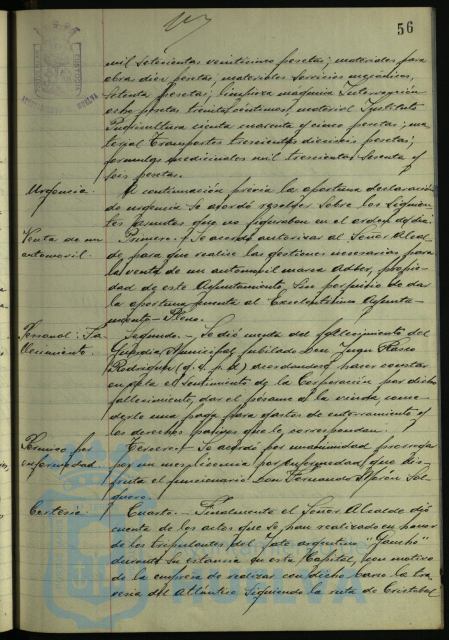 56
mil setecientas veinticinco pesetas; materiales para
obra diez pesetas, materiales servicios mecánicos,
setenta pesetas; limpieza máquina Intervención
ocho pesetas treinta céntimos, material Instituto
Puericultura cienta cuarenta y cinco pesetas; ma-
terial Transportes trescientas dieciseis pesetas;
fórmulas medicinales mil trescientas sesenta y
seis pesetas.
Urgencia.
A continuación previa la oportuna declaración
de urgencia se acordó resolver sobre los siguien-
tes asuntos que no figuraban en el orden del dia
Venta de un
automovil.
Primero. - Se acordó autorizar al Señor Alcal-
de, para que realice las gestiones necesarias para
la venta de un automovil marca Adler, propie-
dad de este Ayuntamiento, sin perjuicio de dar
la oportuna cuenta al Excelentisimo Ayunta-
miento - Pleno.
Personal: Fa-
llecimiento.
Segundo. - Se dió cuenta del fallecimiento del
Guardia Municipal jubilado Don Juan
Rodriguez (q. s. p. d.) acordandose hacer constar
en acta el sentimiento de la Corporación por dicho
fallecimiento, dar el pesame a la viuda, conce-
derle una paga para gastos de enterramiento y
los derechos pasivos que le correspondan.
Permiso por
enfermedad
Tercero. - Se acordó por unanimidad prorrogar
por un mes licencia por enfermedad que dis-
fruta el funcionario Don Fernando Sal-
guero.
Cortesia.
Cuarto. - Finalmente el Señor Alcalde dió
cuenta de los actos que se han realizado en honor
de los tripulantes del Yate argentino "Gaucho"
durante su estancia en esta Capital, con motivo
de la empresa de realizar con dicho barco la tra-
vesia del Atlántico siguiendo la ruta de Cristobal
HUELVA